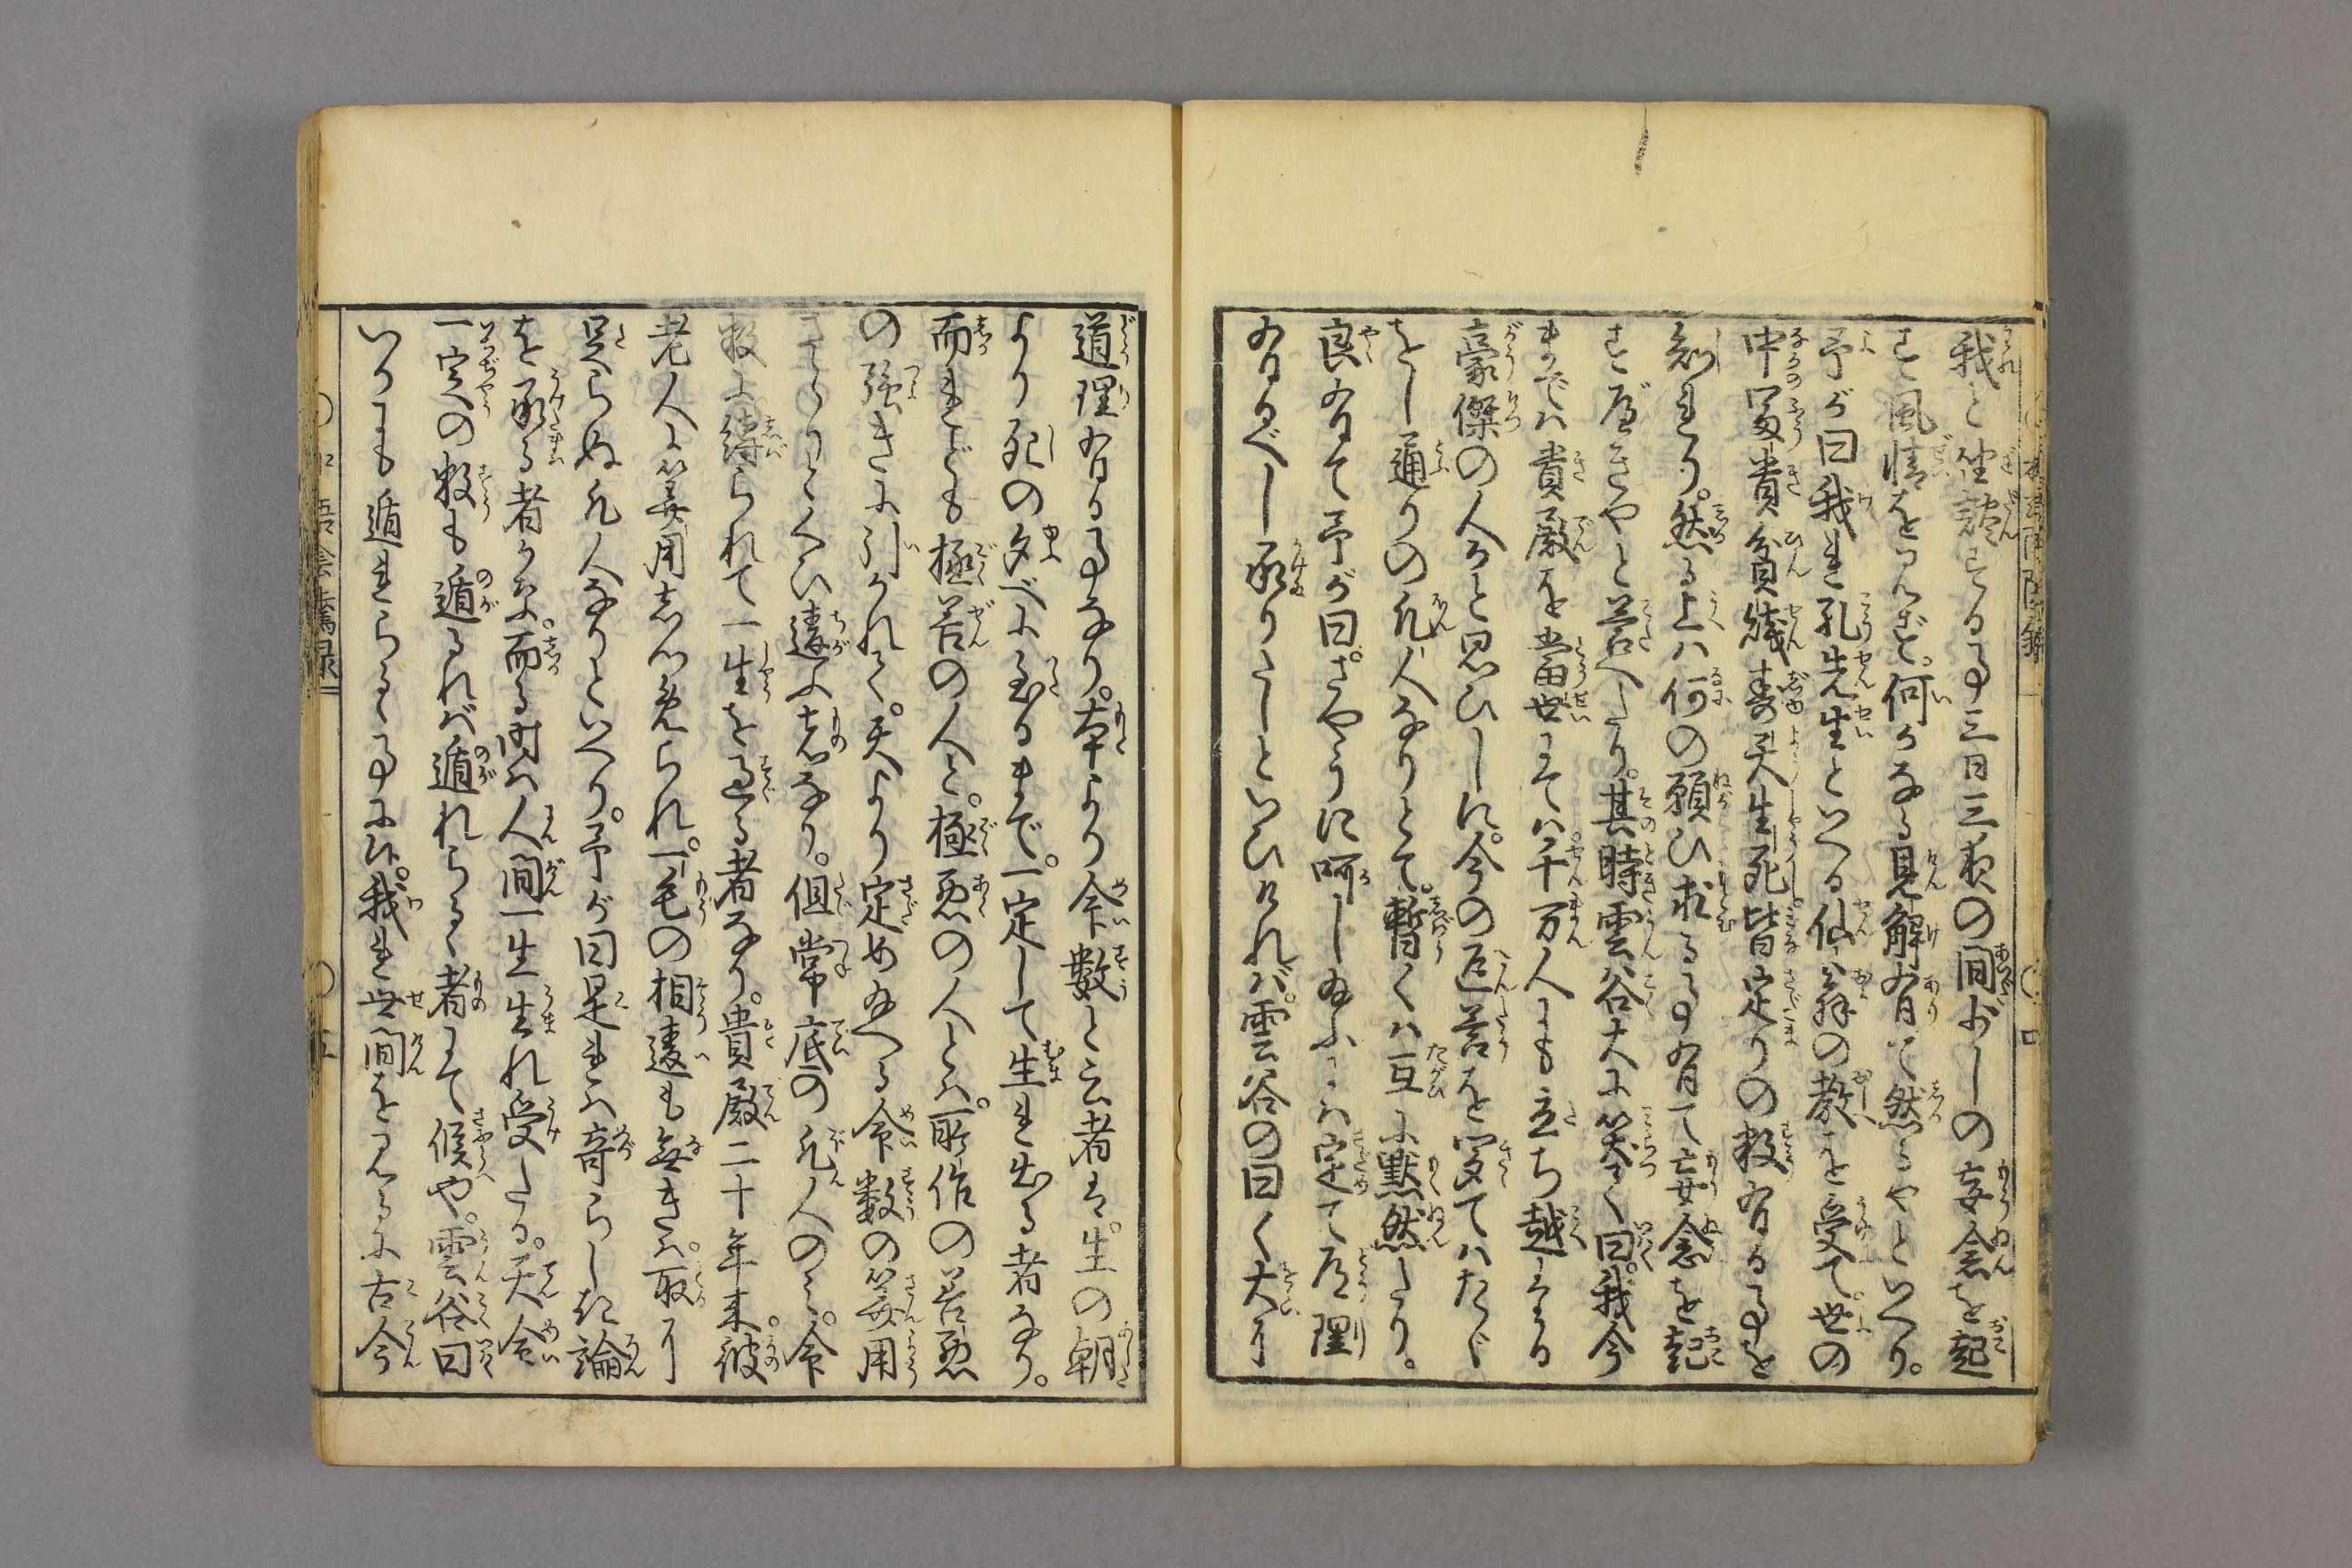 我と坐禅する事三日三夜の間少しの妄念を起
さず風情を見ず。何かなる見解有て然るやといへり。
予が曰我れ孔先生といへる仙翁の教を受て。世の
中冨貴貧賤壽夭生死皆定りの数有る事を
知れり。然る上ハ何の願ひ求る事有て妄念を起
すべきやと答へたり。其時雲谷大に笑て曰。我今
まではハ貴殿を當世にてハ千万人にも立ち越たる
豪傑の人かと思ひしに。今の返答を聞てハたゞ
をし通りの凡人なりとて。暫くハ互に黙然たり。
良有て予が曰。さやうに呵し給ふハ定て道理
有るべし承りたしといひければ。雲谷の曰く大に
道理有る事なり。本より命数と云者は。生の朝
より死の夕べに至るまで。一定して生れ出る者なり。
而れども極善の人と。極悪の人とハ。所作の善悪
の強きに引かれて。天より定め給へる命数の算用
さらりとくひ違ふ者なり。但常底の凡人のミ。命
数に縛られて一生を過る者なり。貴殿二十年来。彼
老人に算用せしめられ。一毛の相違も無きハ。取に
足らぬ凡人なりといへり。予が曰是れハ奇らしき論
を承る者かな。而る時ハ人間一生生れ受たる。天命
一定の数も。遁るれば遁れらるゝ者にて候や。雲谷曰
いかにも遁れらるゝ事に候。我れ世間を見るに古今